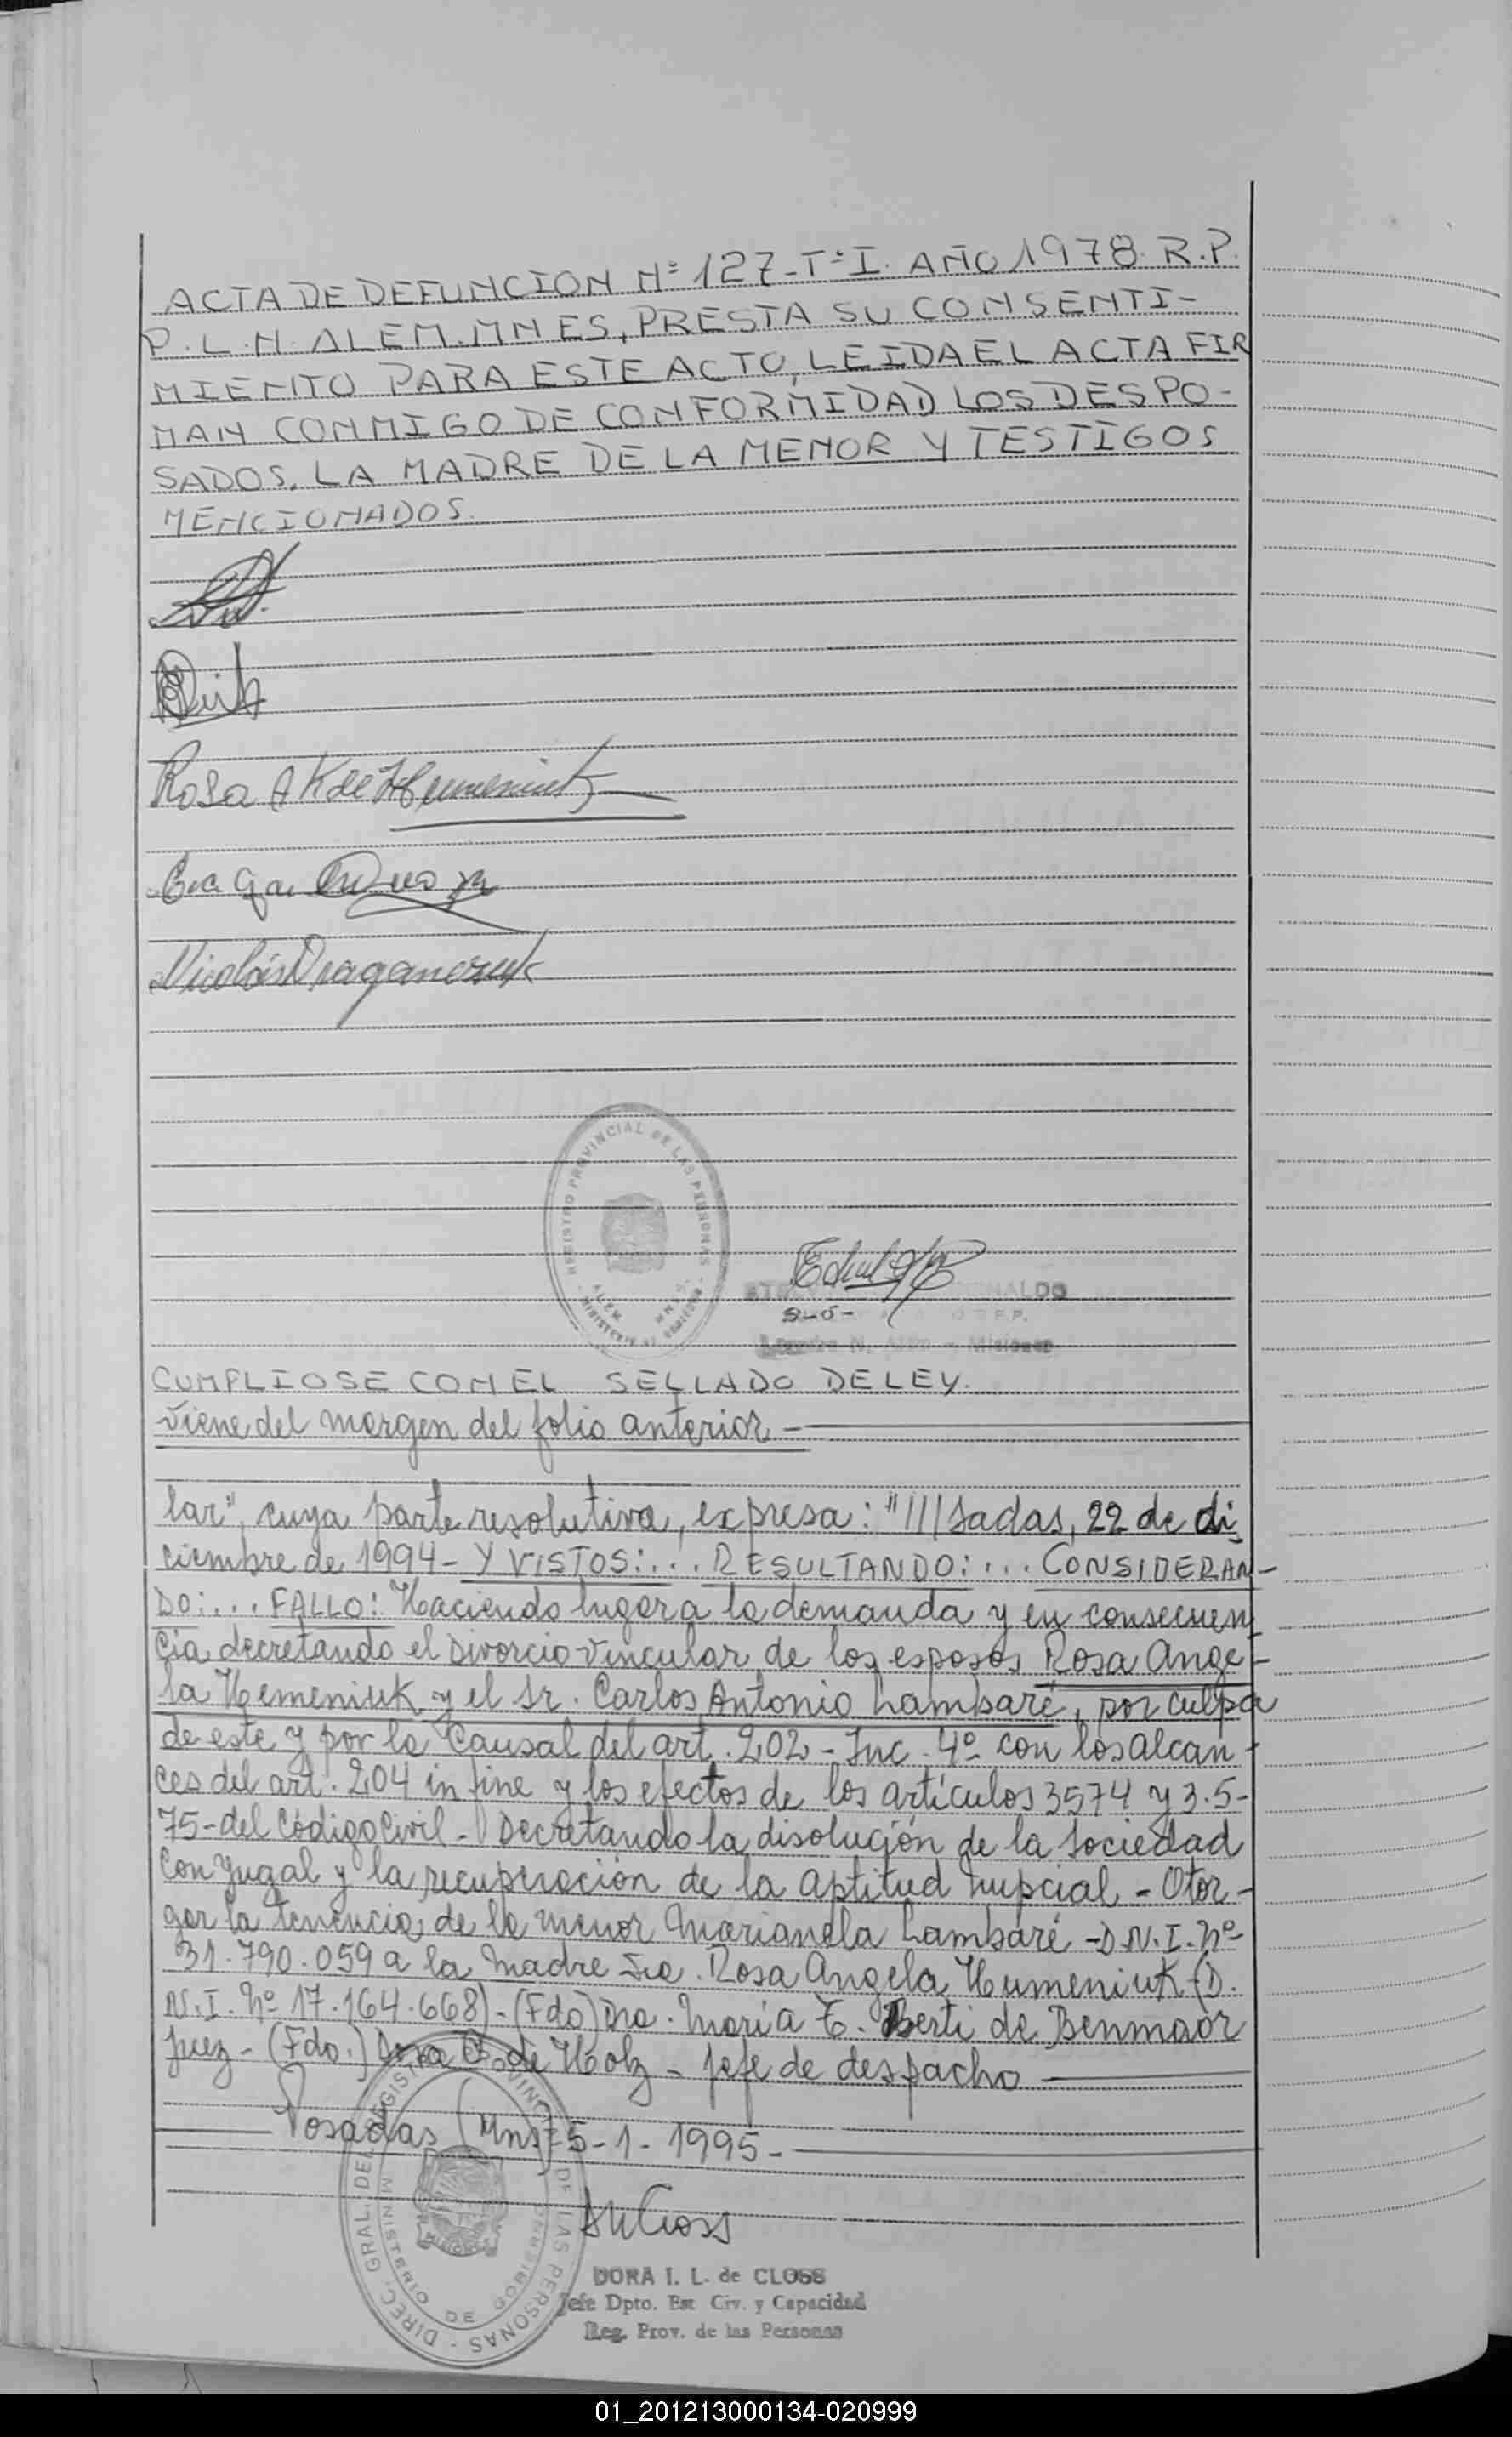 ACTA DE DEFUNCION Nº 127-Tº I. AÑO 1978. R.P.
P. L.N. ALEM. MNES, PRESTA SU CONSENTI-
MIENTO PARA ESTE ACTO, LEIDA EL ACTA FIR
MAN CONMIGO DE CONFORMIDAD LOS DESPO-
SADOS, LA MADRE DE LA MENOR Y TESTIGOS
MENCIONADOS.
Rosa A K de Humeniuk
Nicolás Draganczuk
REGISTRO PROVINCIAL DE LAS PERSONAS
ALEM MNES.
MINISTERIO DE GOBIERNO
Leandro N. Alem - Misiones
CUMPLIOSE CON EL SELLADO DE LEY.
Viene del margen del folio anterior -
lar", cuya parte resolutiva, expresa: "///sadas, 22 de di
ciembre de 1994- Y VISTOS:... RESULTANDO:... CONSIDERAN-
DO:... FALLO: Haciendo lugar a la demanda y en consecuen
cia decretando el Divorcio Vincular de los esposos Rosa Ange-
la Hemeniuk y el Sr. Carlos Antonio Lambaré, por culpa
de este y por la Causal del art. 202 - Inc. 4º con los alcan-
ces del art. 204 in fine y los efectos de los artículos 3574 y 3.5-
75-del Código Civil - Decretando la disolución de la Sociedad
Conyugal y la recuperación de la aptitud nupcial - Otor-
gar la tenencia de la menor Marianela Lambaré - D.N.I. Nº
31.790.059 a la madre Sra. Rosa Angela Humeniuk (D.
N.I. Nº 17.164.668) - (Fdo) Dra. María T. Berti de Benmaor
Juez - (Fdo.) Dora de Holz - Jefe de despacho
Posadas (Mns) 5-1-1995-
DIREC. GRAL. DEL REGISTRO PROVINC. DE LAS PERSONAS
MINISTERIO DE GOBIERNO
DORA I. L. de CLOSS
Jefe Dpto. Est Civ. y Capacidad
Reg. Prov. de las Personas
01_201213000134-020999